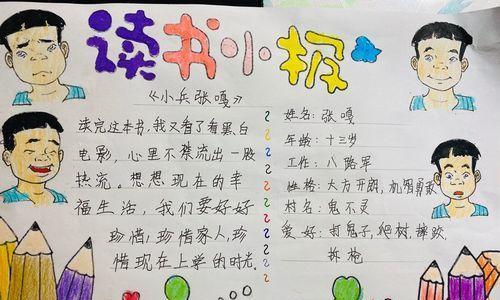 读书小报
《小兵张嘎》
读完这本书,我又看了看黑白
电影,心里不禁流出一股
热流。想想现在的幸
福生活,我们要好好
珍惜,珍惜家人,珍
惜现在上学的时光.
姓名:张嘎
年龄:十三岁
工作:八路军
性格:大方开朗,机智勇敢
村名:鬼不灵
爱好:打鬼子,爬树,摔跤,
拆枪